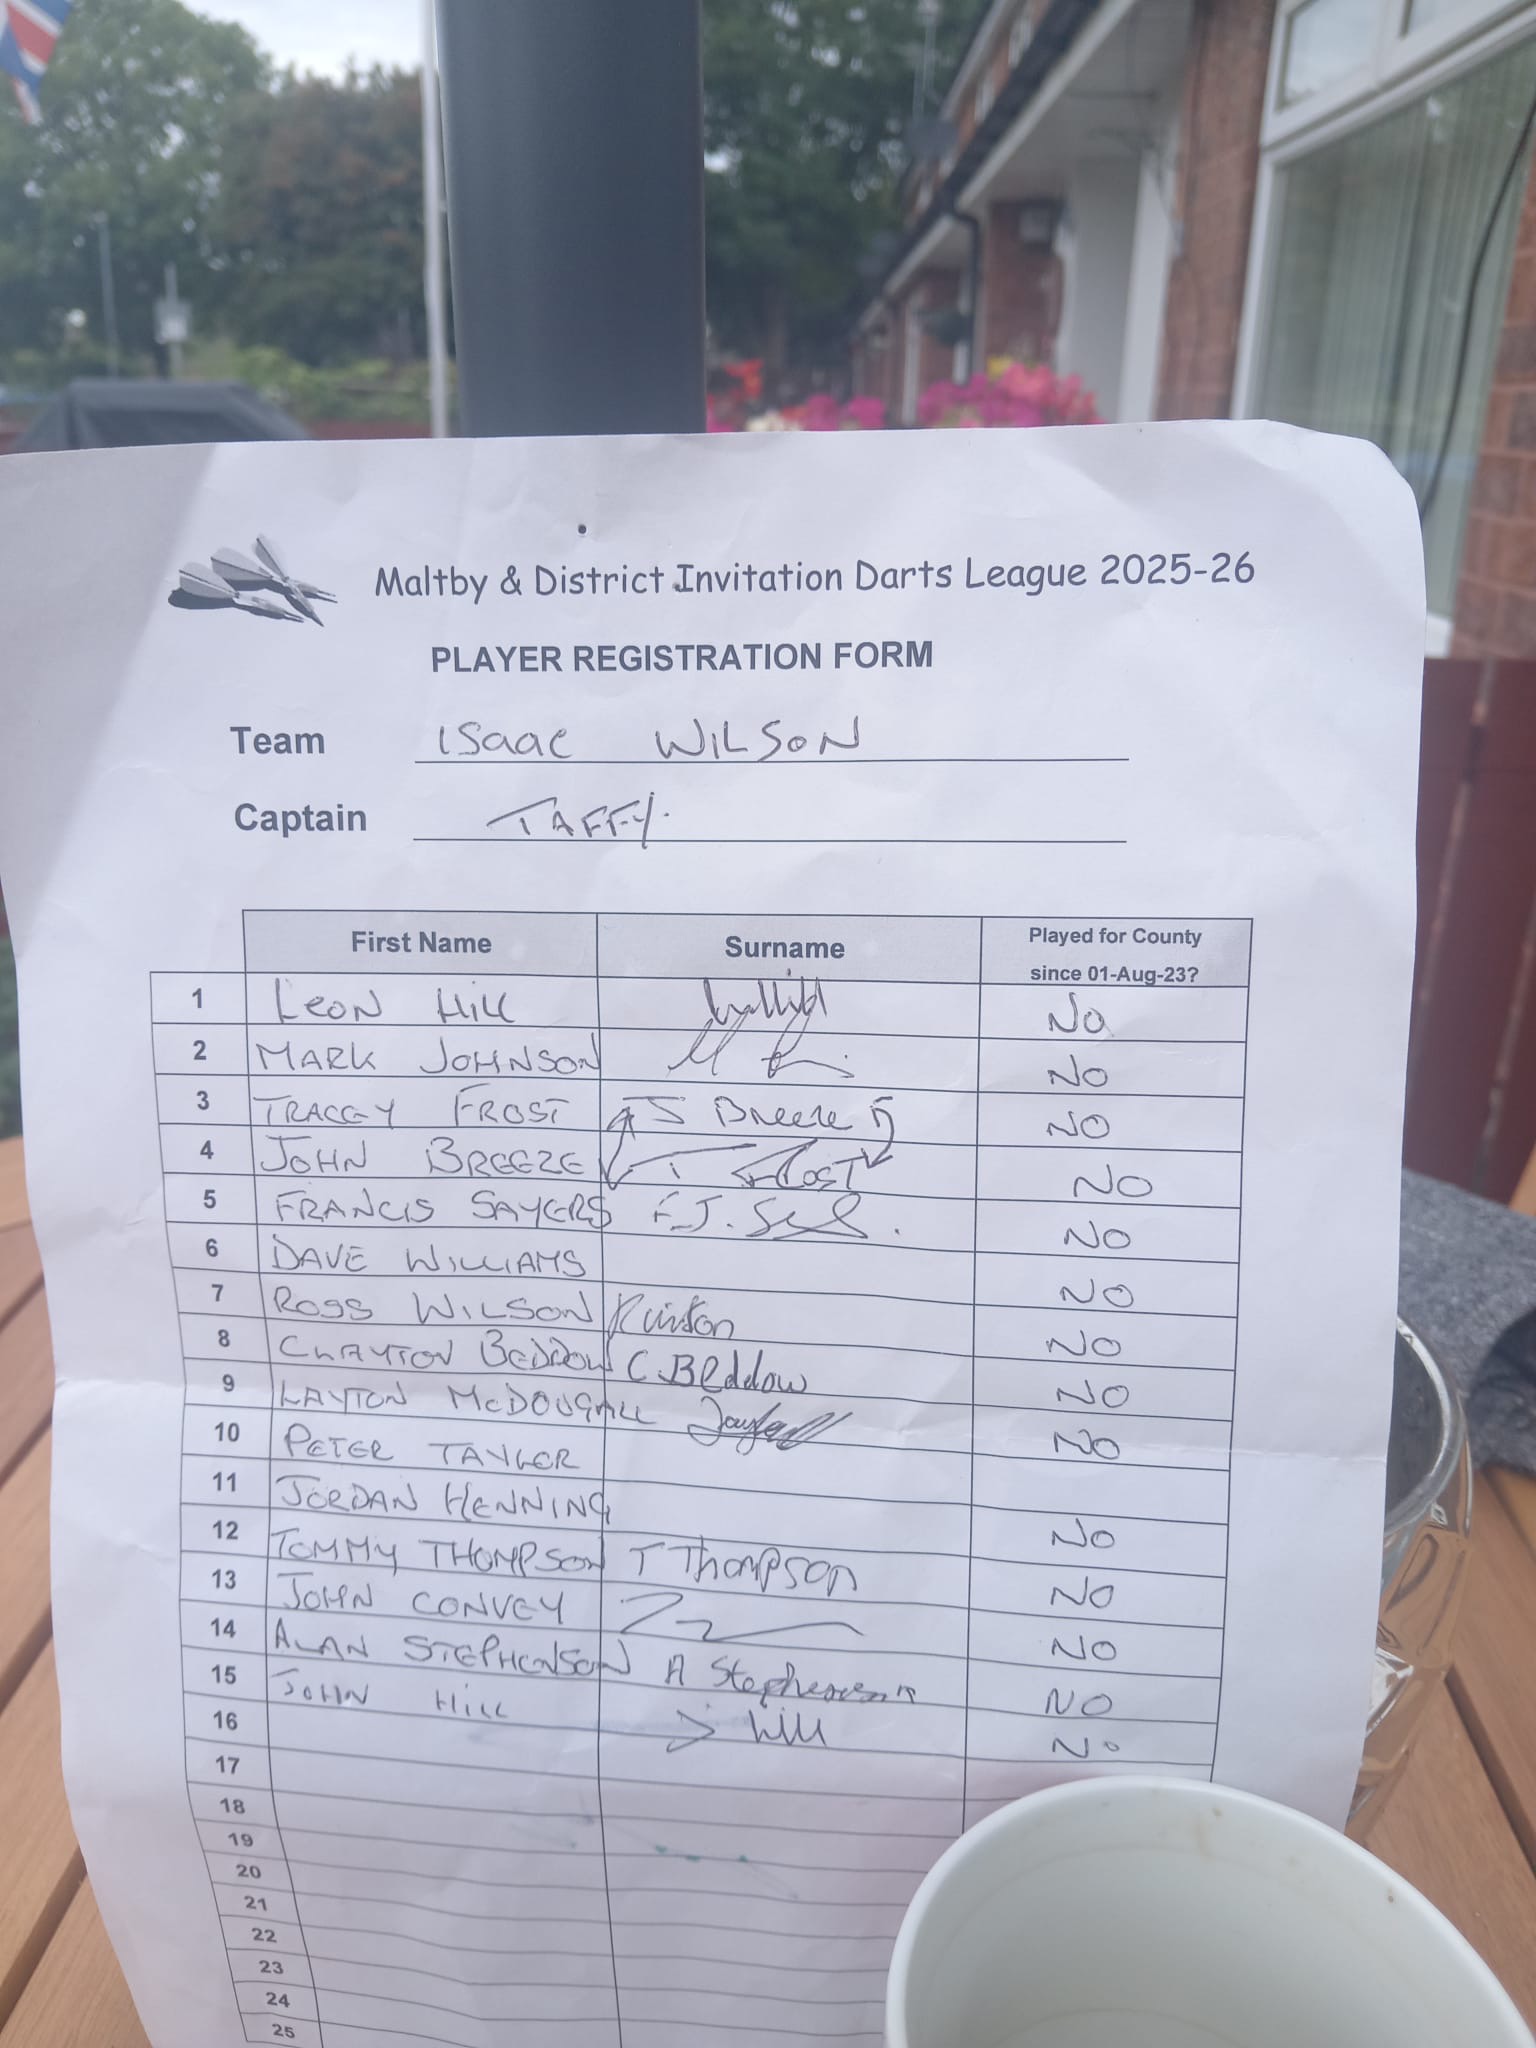 Maltby & District Invitation Darts League 2025-26
PLAYER REGISTRATION FORM
Team ISaac WILSON
Captain TAFFY.
First Name Surname Played for County since 01-Aug-23?
1 LEON HILL NO
2 MARK JOHNSON NO
3 TRACEY FROST J Breeze NO
4 JOHN BREEZE T FROST NO
5 FRANCIS SAYERS F.J. NO
6 DAVE WILLIAMS NO
7 ROSS WILSON NO
8 CLAYTON BEDDOW C.Beddow NO
9 LAYTON McDOUGALL NO
10 PETER TAYLOR
11 JORDAN HENNING NO
12 TOMMY THOMPSON T Thompson NO
13 JOHN CONVEY NO
14 ALAN STEPHENSON A Stephenson NO
15 JOHN HILL J Hill NO
16
17
18
19
20
21
22
23
24
25